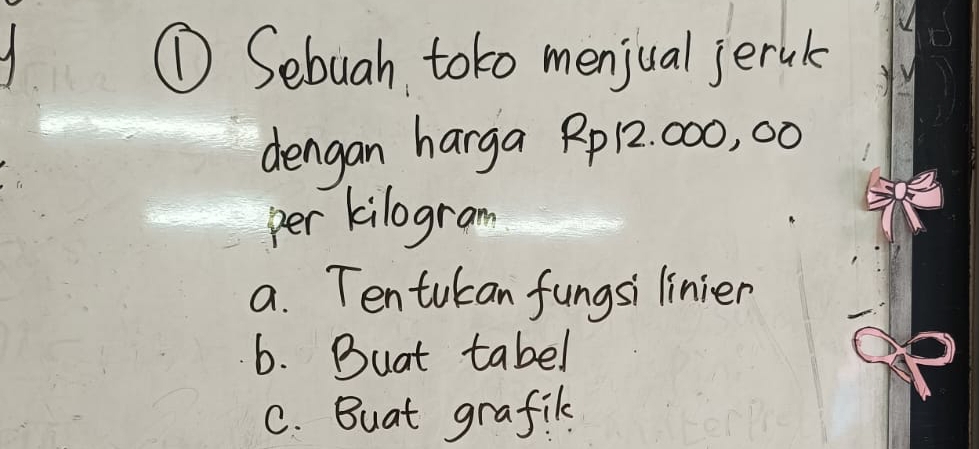 ① Sebuah toko menjual jeruk
dengan harga Rp12.000,00
per kilogram
a. Tentukan fungsi linier
b. Buat tabel
c. Buat grafik